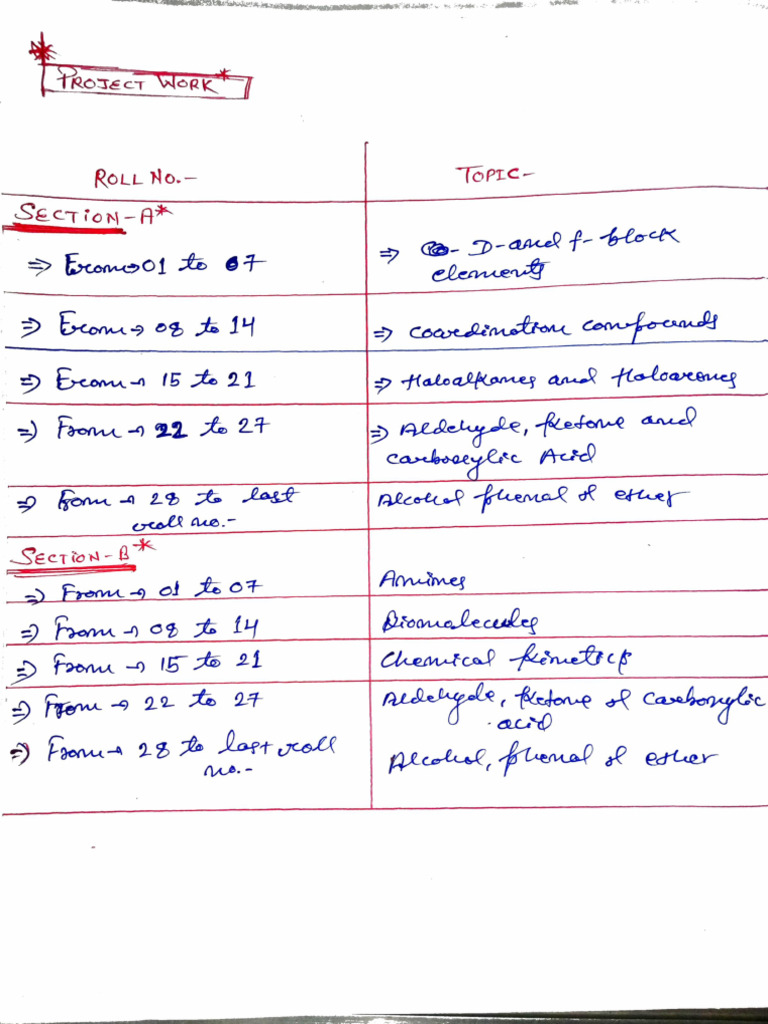 PROJECT WORK*
ROLL NO.- TOPIC-
SECTION-A*
⇒ From → 01 to 07 ⇒ D-and f-block
elements
⇒ From → 08 to 14 ⇒ Coordination compounds
⇒ From → 15 to 21 ⇒ Haloalkanes and Haloarenes
⇒ From → 22 to 27 ⇒ Aldehyde, ketone and
carboxylic Acid
⇒ From → 28 to last Alcohol phenal & ether
roll no.-
SECTION-B*
⇒ From → 01 to 07 Amines
⇒ From → 08 to 14 Biomalecules
⇒ From → 15 to 21 Chemical kinetics
⇒ From → 22 to 27 Aldehyde, ketone & carboxylic
acid
⇒ From → 28 to last roll Alcohol, phenal & ether
no.-